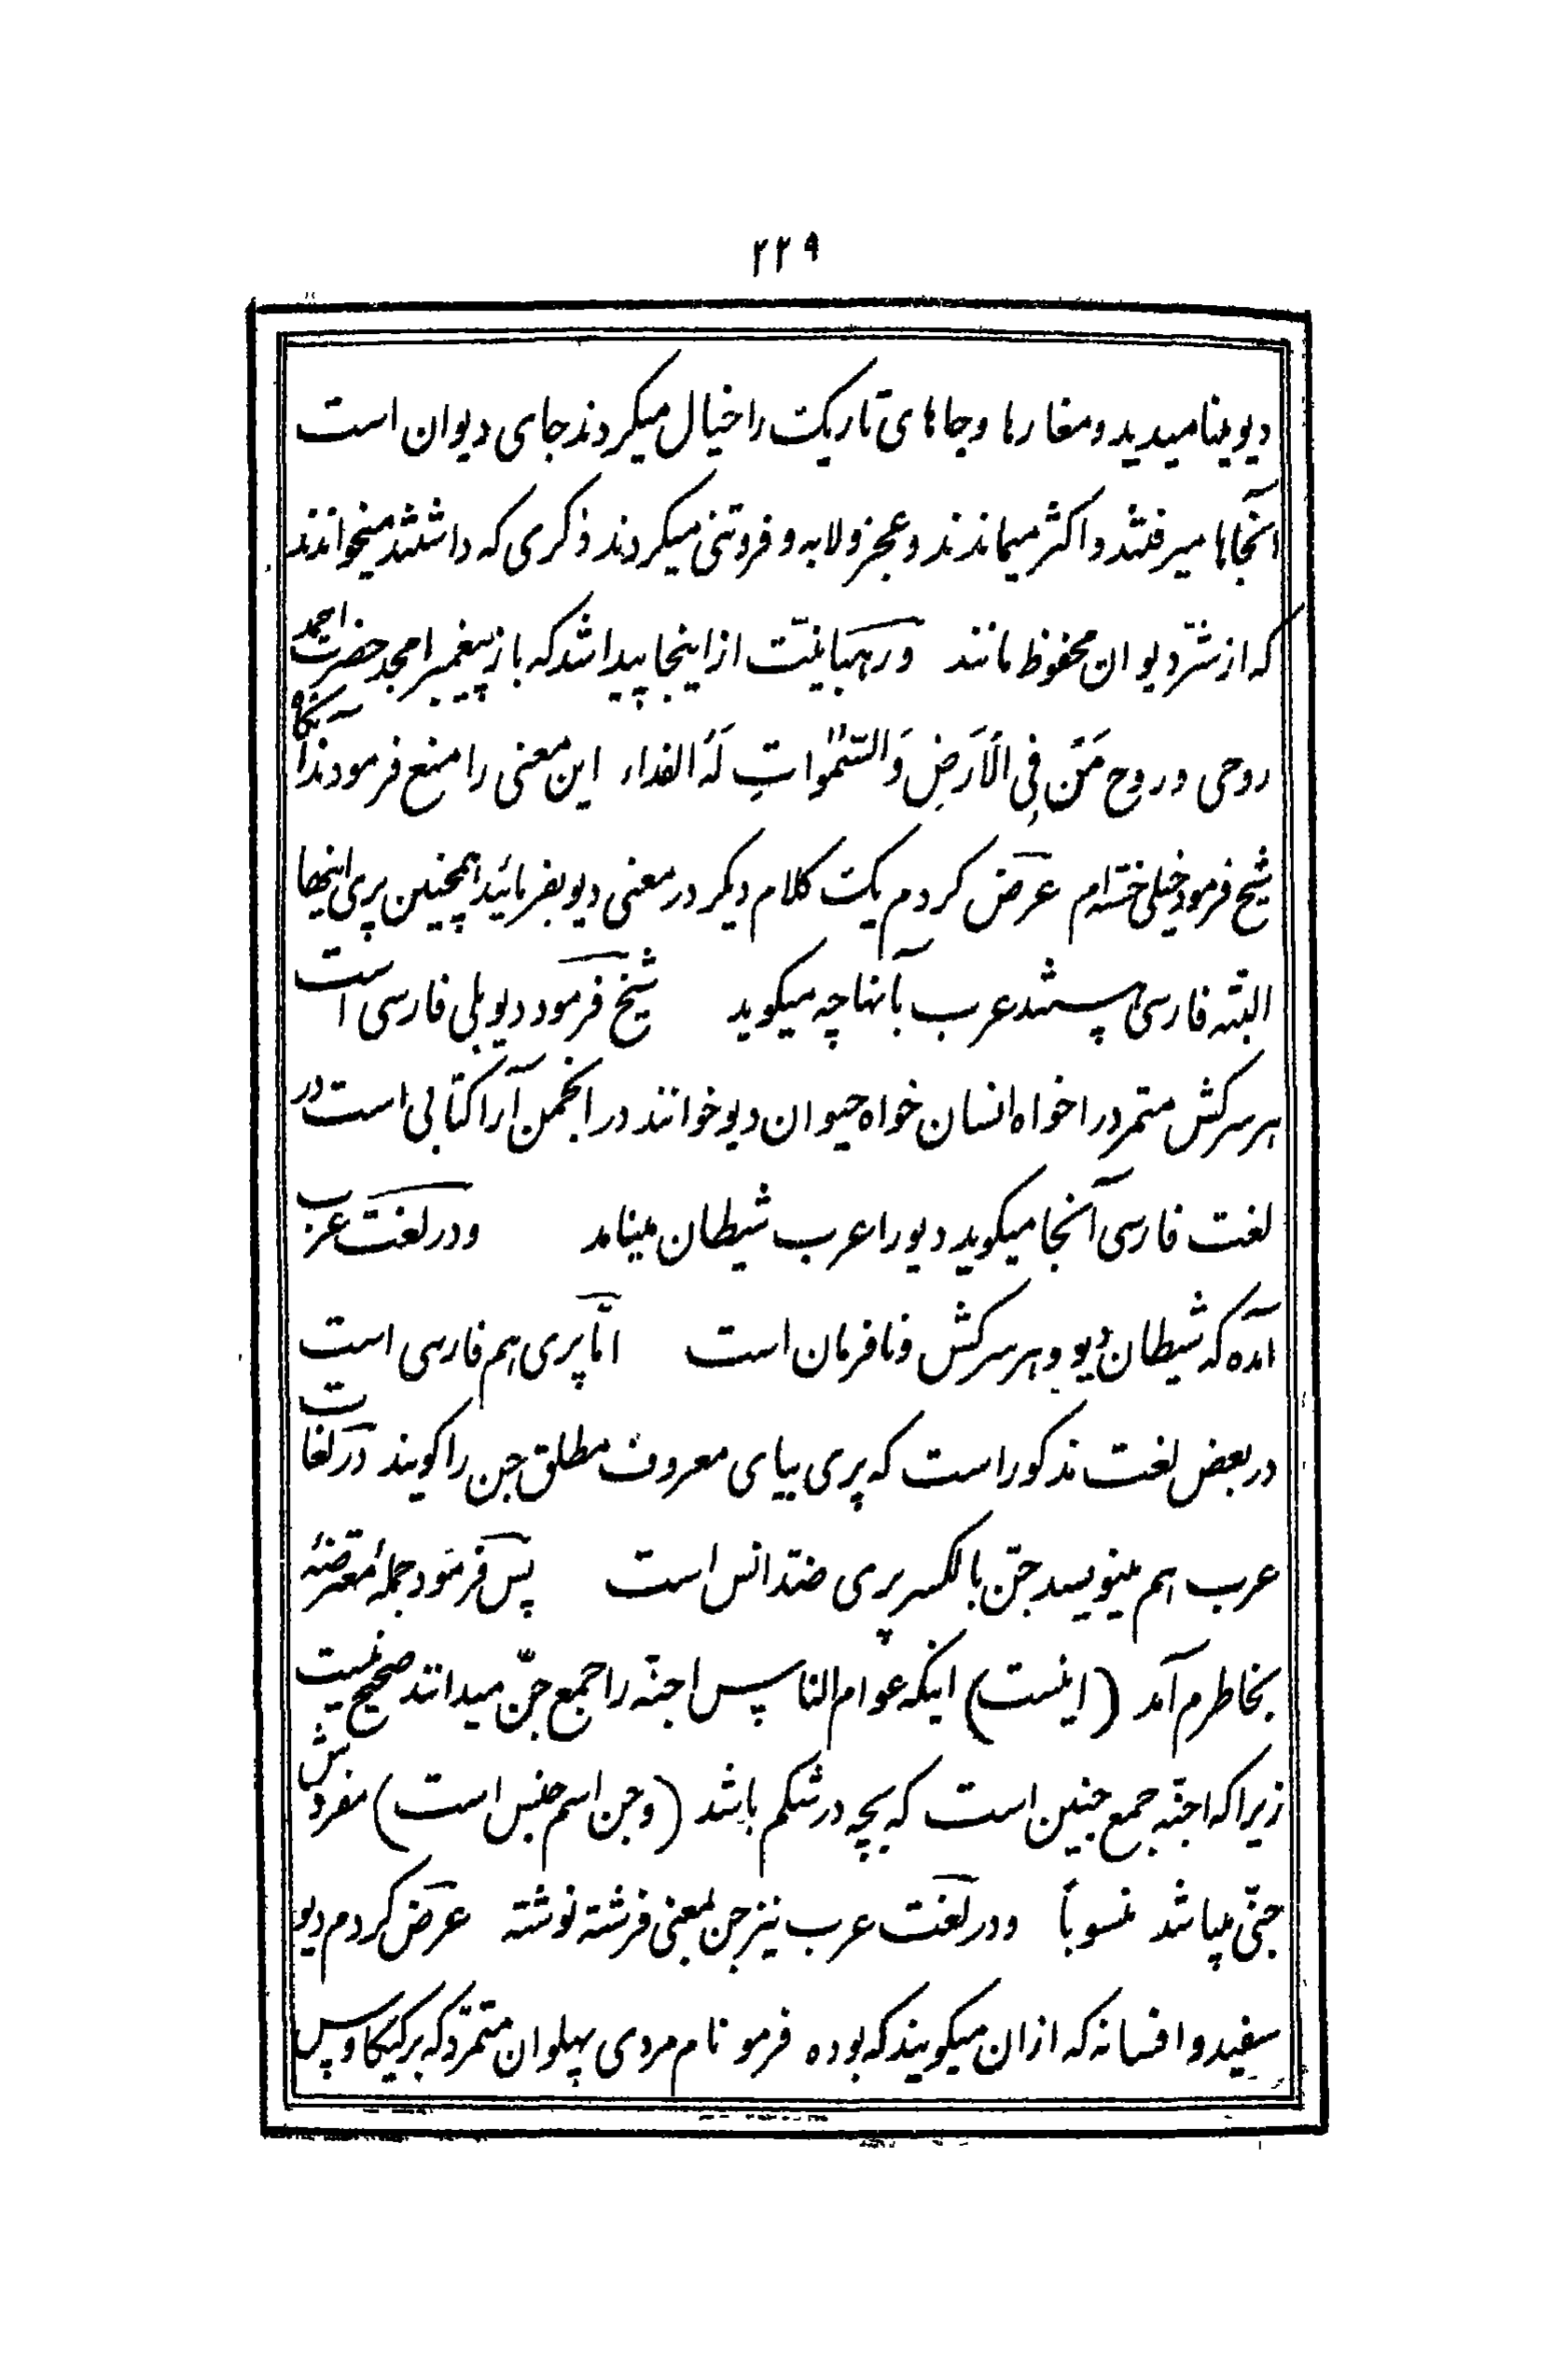 ۲۲۹
دیو مینامیدید و مغارها و جاهای تاریک را خیال میکردند جای دیوان است
آنجاها میرفتند و اکثر میماندند و عجز و لابه و فروتنی میکردند ذکری که داشتند میخواندند
که از شرّ دیوان محفوظ مانند و رهبانیّت از اینجا پیدا شد که باز پیغمبر امجد حضرت احمد
روحی و روح مَنْ فِی الْاَرَضِ وَالسَّمٰواتِ لَهُ الفداء این معنی را منع فرمودند آنگاه
شیخ فرمود خیلی خسته‌ام عرض کردم یک کلام دیگر در معنی دیو بفرمائید همچنین پری اینها
البتّه فارسی هستند عرب بآنها چه میگوید شیخ فرمود دیو بلی فارسی است
هر سرکش متمرد را خواه انسان خواه حیوان دیو خوانند در انجمن آرا کتابی است در
لغت فارسی آنجا میگوید دیو را عرب شیطان مینامد و در لغت عرب
آمده که شیطان دیو و هر سرکش و نافرمان است امّا پری هم فارسی است
در بعض لغت مذکور است که پری بیای معروف مطلق جن را گویند در لغات
عرب هم مینویسد جنّ بالکسر پری ضدّ انس است پس فرمود جملهٔ معترضهٔ
بخاطرم آمد (اینست) اینکه عوام الناس اجنّه را جمع جنّ میدانند صحیح نیست
زیرا که اجنّه جمع جنین است که بچه در شکم باشد (و جن اسم جنس است) مفردش
جنّی میباشد منسوباً و در لغت عرب نیز جن بمعنی فرشته نوشته عرض کردم دیو
سفید و افسانه که از ان میگویند که بوده فرمو نام مردی پهلوان متمرّد که بر کیکاوس